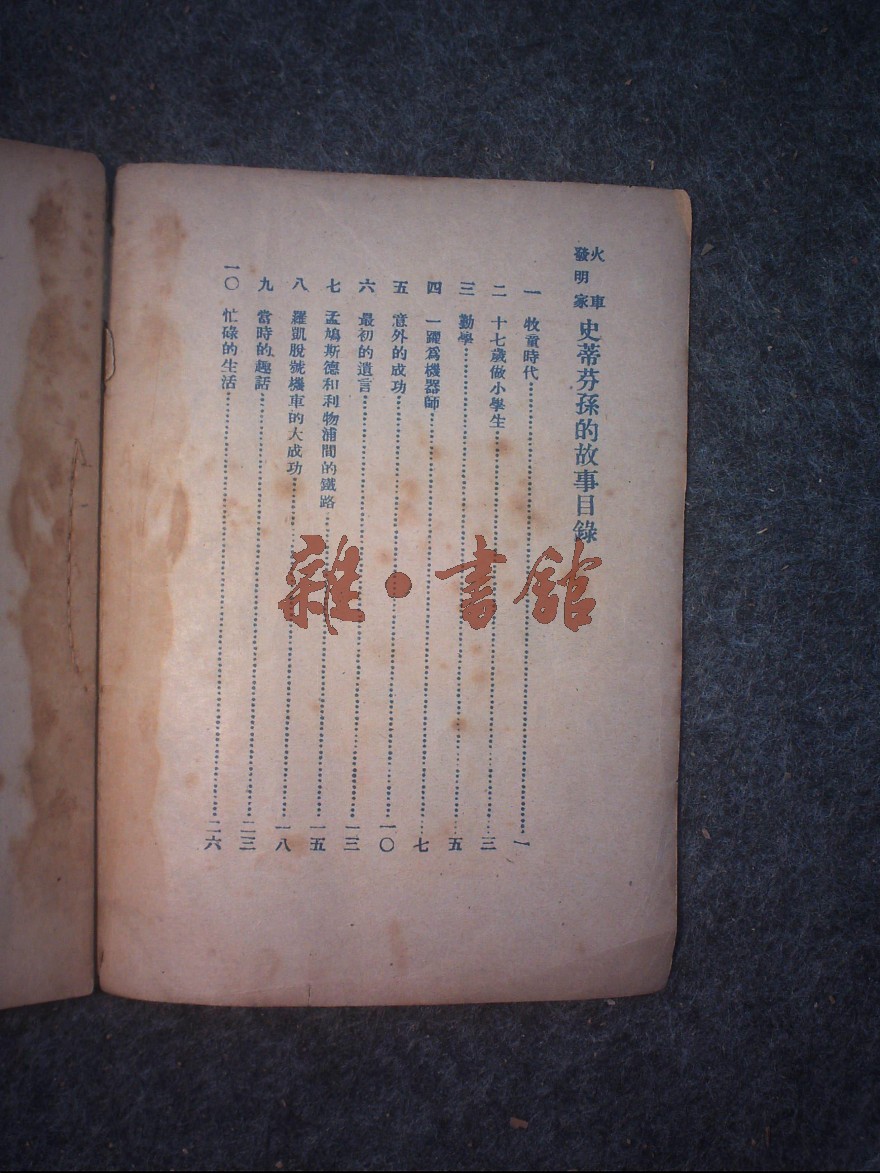 火車
發明家
史蒂芬孫的故事目錄
一 牧童時代……………一
二 十七歲做小學生……………三
三 勤學……………五
四 一躍為機器師……………七
五 意外的成功……………一〇
六 最初的遺言……………一三
七 孟鳩斯德和利物浦間的鐵路……………一五
八 羅凱脫號機車的大成功……………一八
九 當時的趣話……………二三
一〇 忙碌的生活……………二六
雜·書館